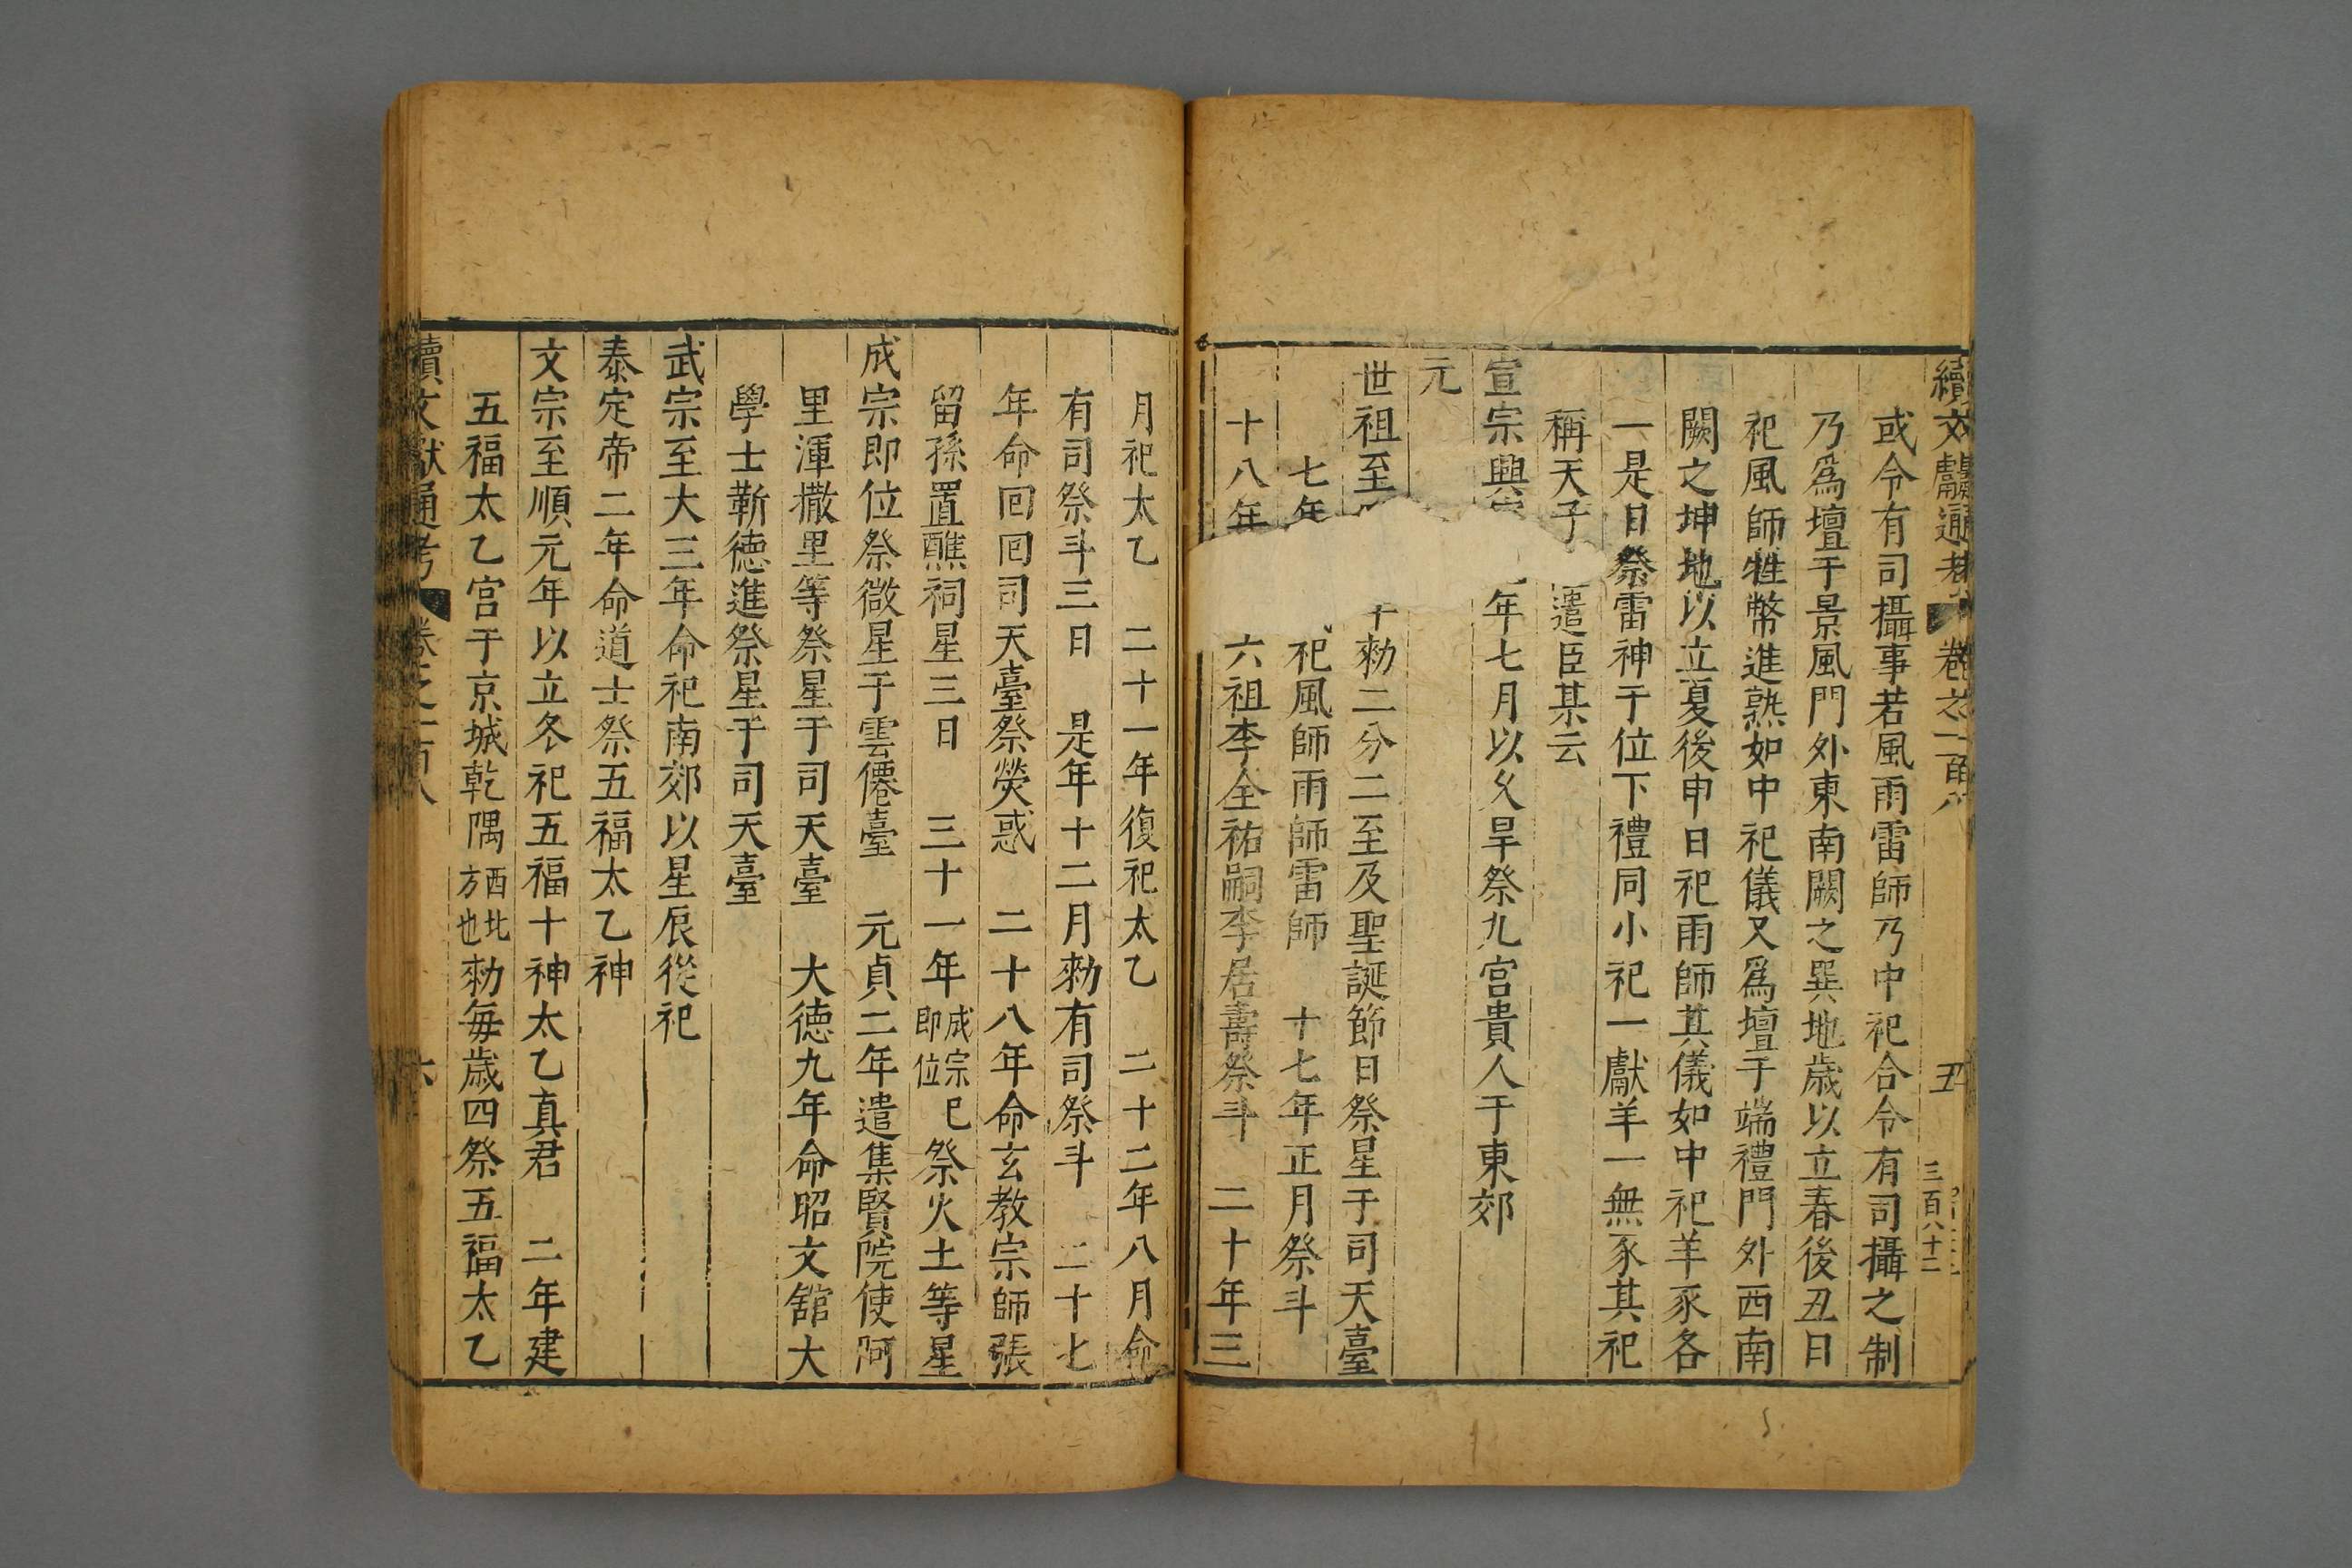 續文獻通考 卷之一百八 五 三百八十二
或令有司攝事若風雨雷師乃中祀合令有司攝之制
乃爲壇于景風門外東南闕之巽地歳以立春後丑日
祀風師牲幣進熟如中祀儀又爲壇于端禮門外西南
闕之坤地以立夏後申日祀雨師其儀如中祀羊豕各
一是日祭雷神于位下禮同小祀一獻羊一無豕其祀
稱天子 遣臣某云
宣宗興 年七月以久旱祭九宮貴人于東郊
元
世祖至 勑二分二至及聖誕節日祭星于司天臺
七年 祀風師雨師雷師 十七年正月祭斗
十八年 六祖李全祐嗣李居壽祭斗 二十年三
月祀太乙 二十一年復祀太乙 二十二年八月命
有司祭斗三日 是年十二月勑有司祭斗 二十七
年命回回司天臺祭熒惑 二十八年命玄教宗師張
留孫置醮祠星三日 三十一年成宗即位巳祭火土等星
成宗即位祭微星于雲僊臺 元貞二年遣集賢院使阿
里渾撒里等祭星于司天臺 大德九年命昭文舘大
學士靳德進祭星于司天臺
武宗至大三年命祀南郊以星辰從祀
泰定帝二年命道士祭五福太乙神
文宗至順元年以立冬祀五福十神太乙真君 二年建
五福太乙宮于京城乾隅西北方也勑每歳四祭五福太乙
續文獻通考 卷之一百八 六